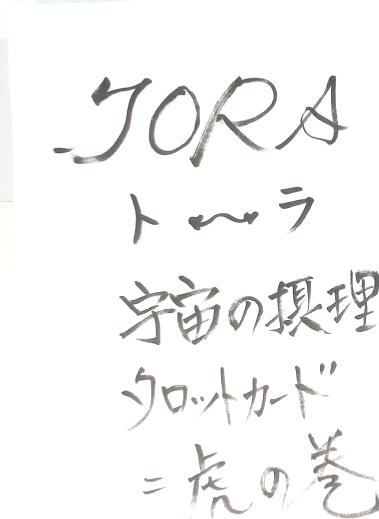 TORA
ト〜ラ
宇宙の摂理
タロットカード
=虎の巻